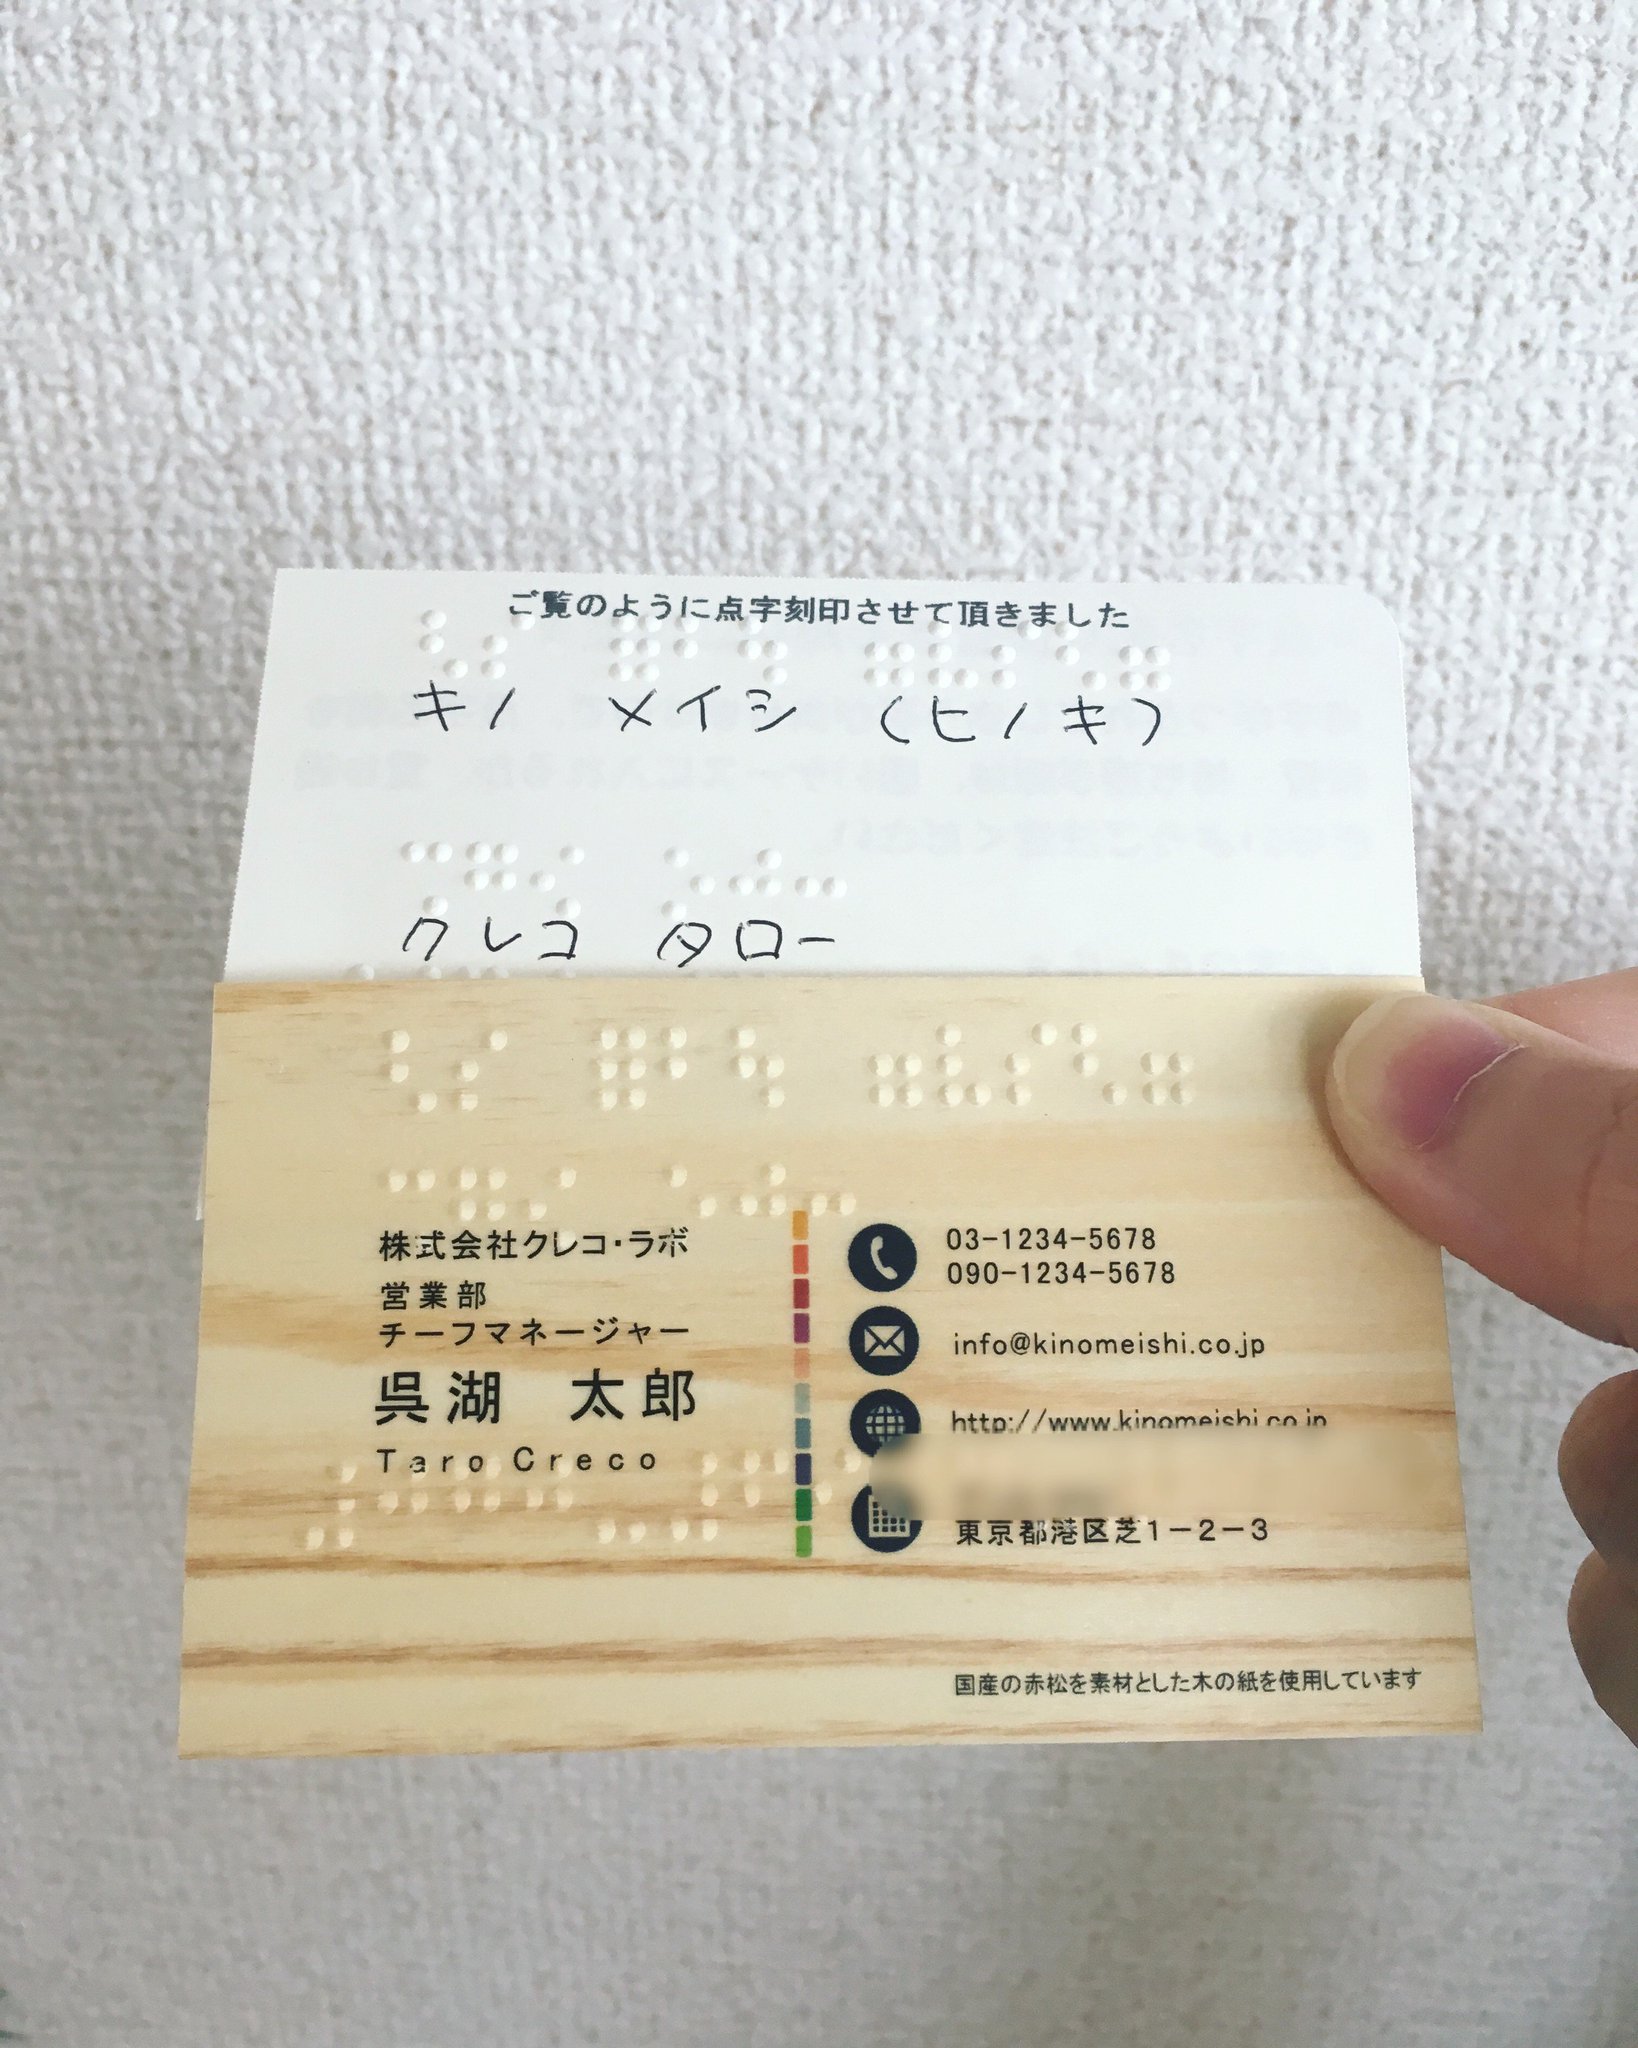 ご覧のように点字刻印させて頂きました
キノ メイシ (ヒノキ)
クレコ タロー
株式会社クレコ・ラボ
営業部
チーフマネージャー
呉湖 太郎
Taro Creco
03-1234-5678
090-1234-5678
info@kinomeishi.co.jp
http://www.kinomeishi.co.jp
東京都港区芝1-2-3
国産の赤松を素材とした木の紙を使用しています